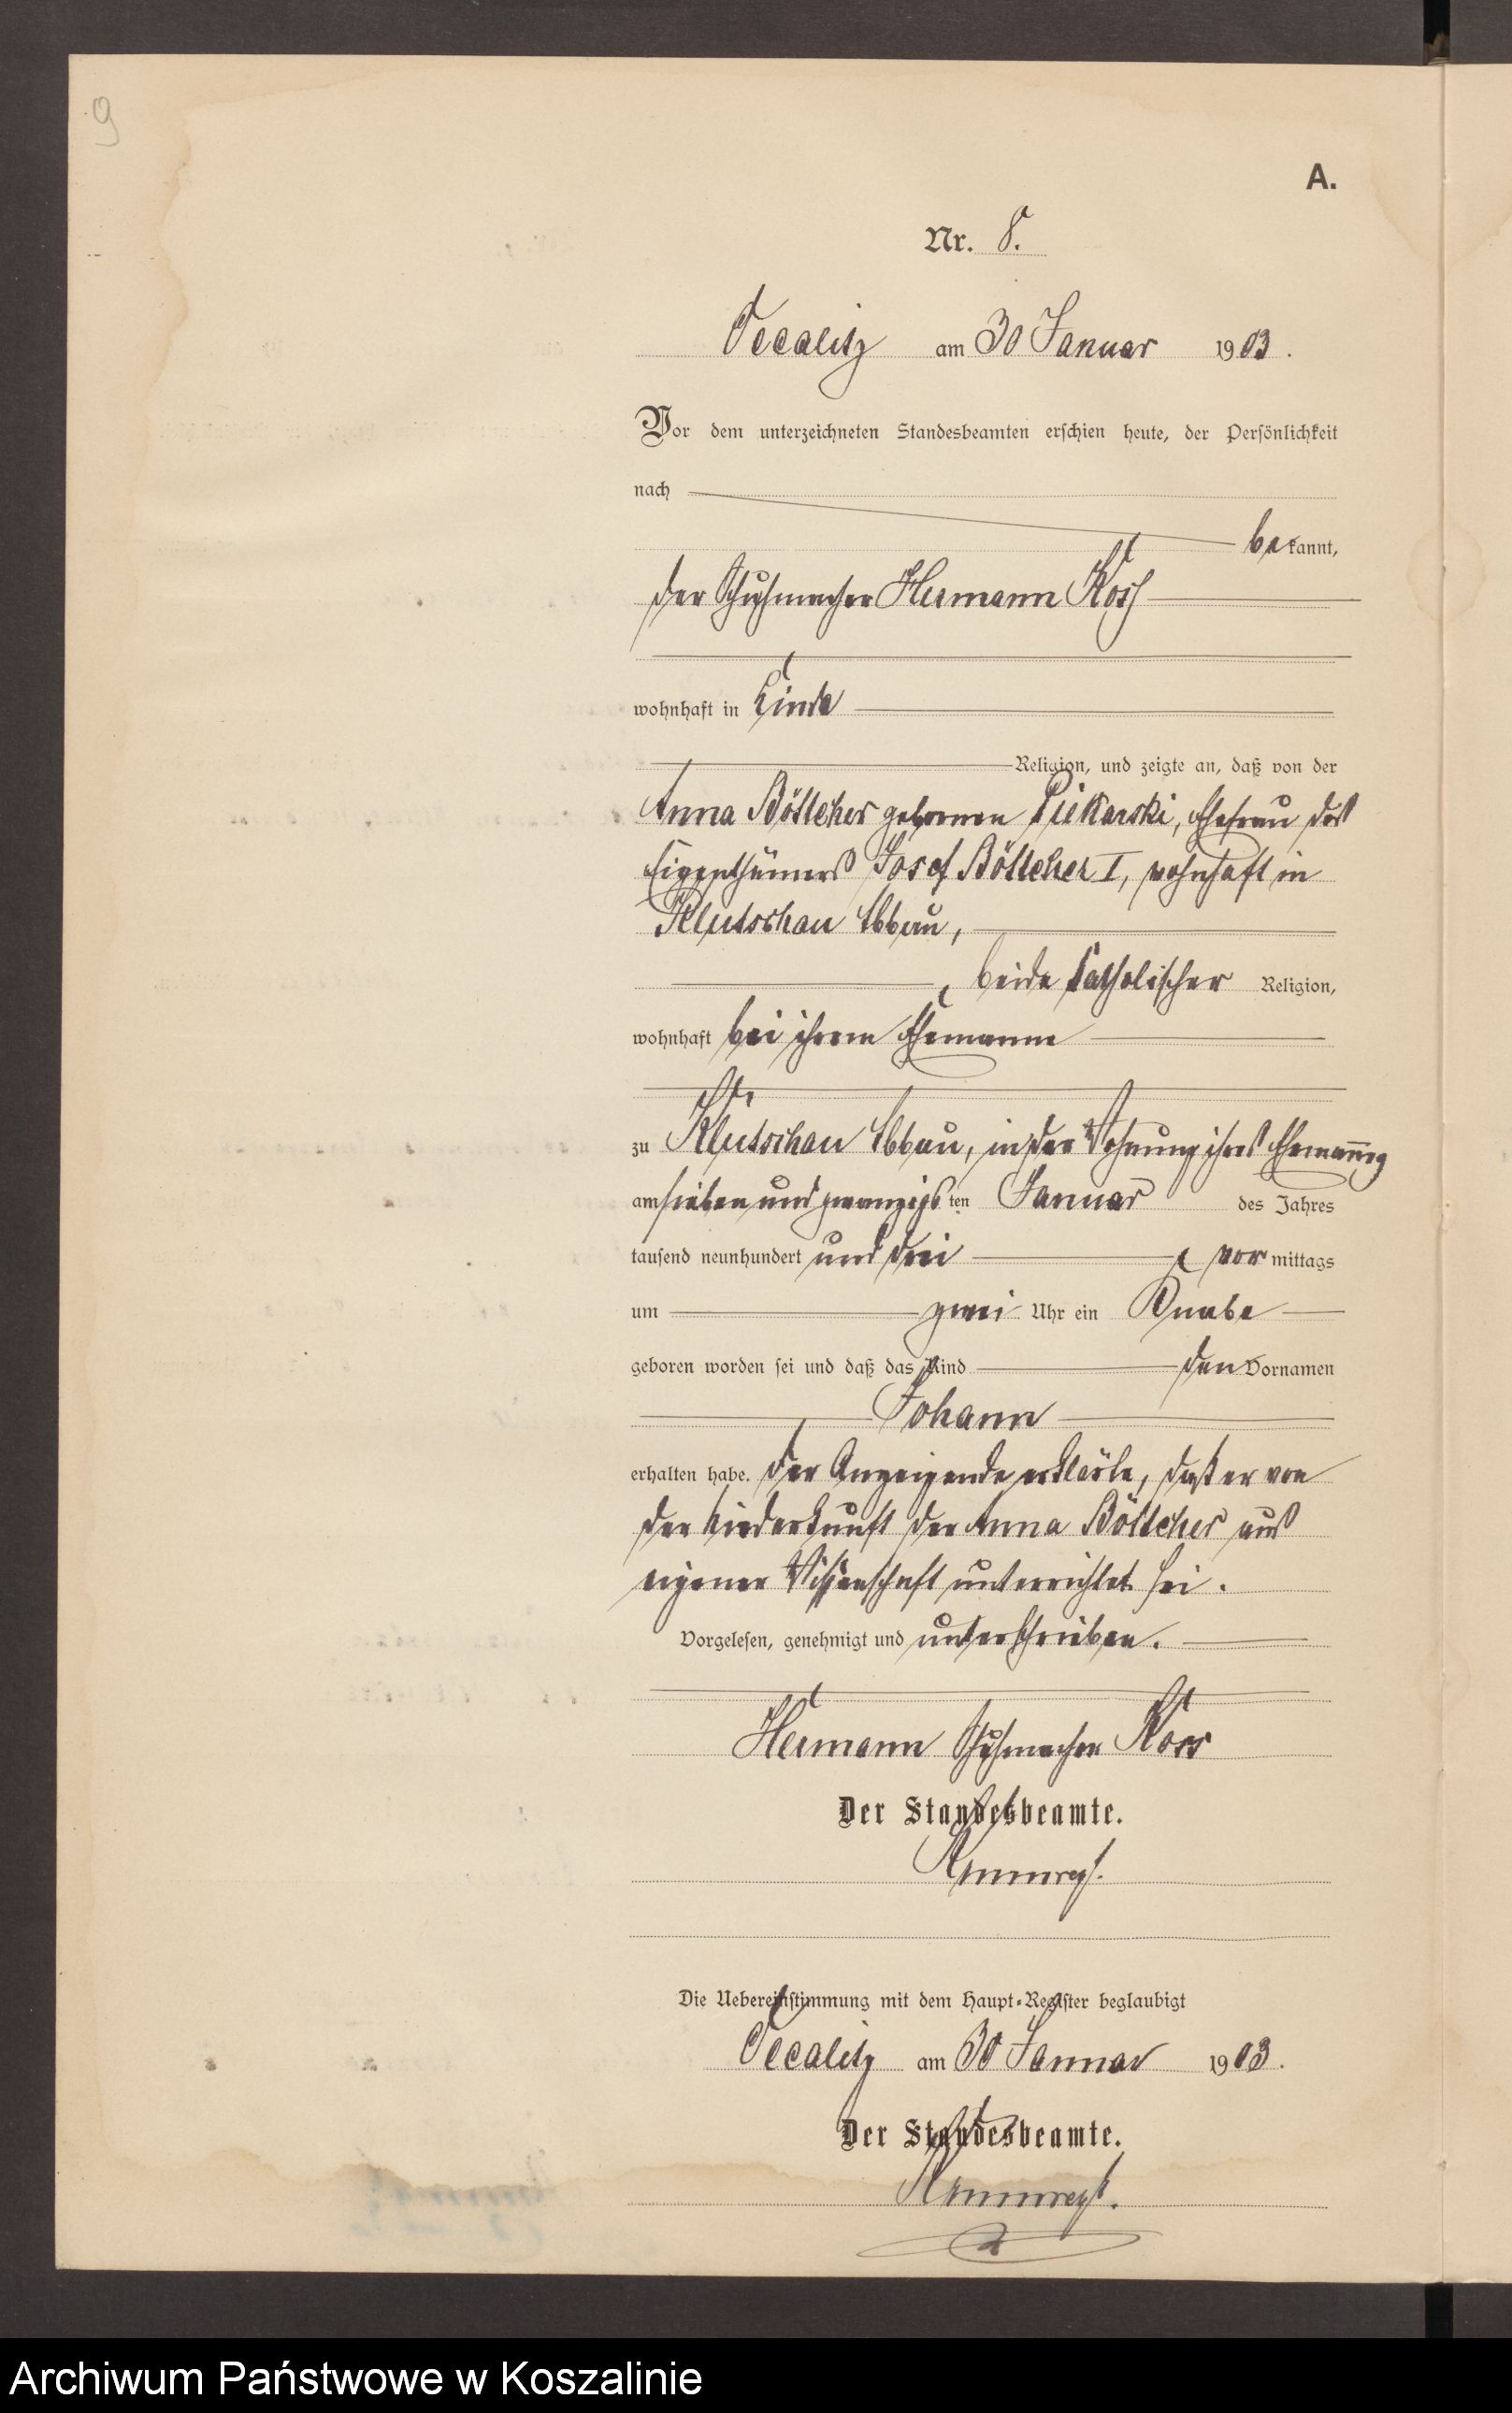 9
A.
Nr. 8.
Occalitz am 30 Januar 1903.
Vor dem unterzeichneten Standesbeamten erschien heute, der Persönlichkeit
nach
bekannt,
der Schuhmacher Hermann Koss
wohnhaft in Linde
Religion, und zeigte an, daß von der
Anna Böttcher geborenen Piekarski, Ehefrau des
Eigenthümers Josef Böttcher I, wohnhaft in
Klutschau Abbau,
beide katholischer Religion,
wohnhaft bei ihrem Ehemanne
zu Klutschau Abbau, in der Wohnung ihres Ehemannes
am sieben und zwanzigsten Januar des Jahres
tausend neunhundert und drei vor mittags
um zwei Uhr ein Knabe
geboren worden sei und daß das Kind den Vornamen
Johann
erhalten habe. Der Anzeigende erklärte, daß er von
der Niederkunft der Anna Böttcher aus
eigener Wissenschaft unterrichtet sei.
Vorgelesen, genehmigt und unterschrieben.
Hermann Schuhmacher Koss
Der Standesbeamte.
Die Uebereinstimmung mit dem Haupt-Register beglaubigt
Occalitz am 30 Januar 1903.
Der Standesbeamte.
Archiwum Państwowe w Koszalinie